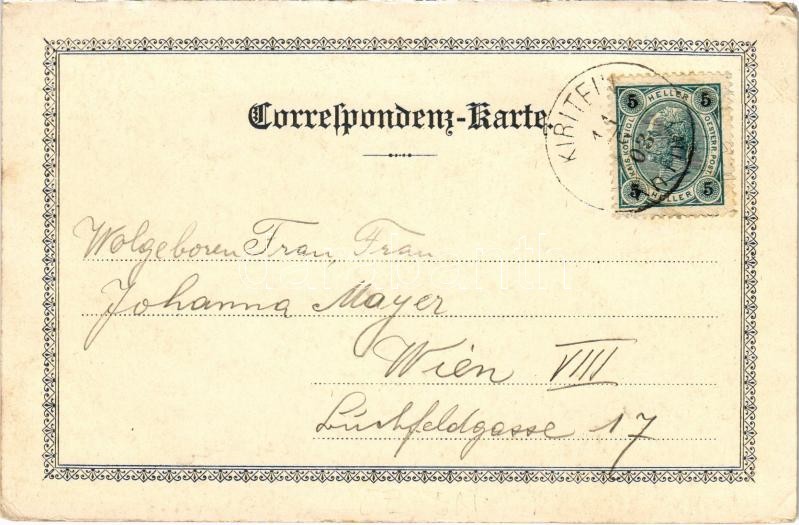 Correspondenz-Karte.
KIRITEIN
03
5 HELLER 5
KAIS. KOENIGL. OESTERR. POST
5 HELLER 5
Wolgeboren Frau, Frau
Johanna Mayer
Wien VIII
Buchfeldgasse 17